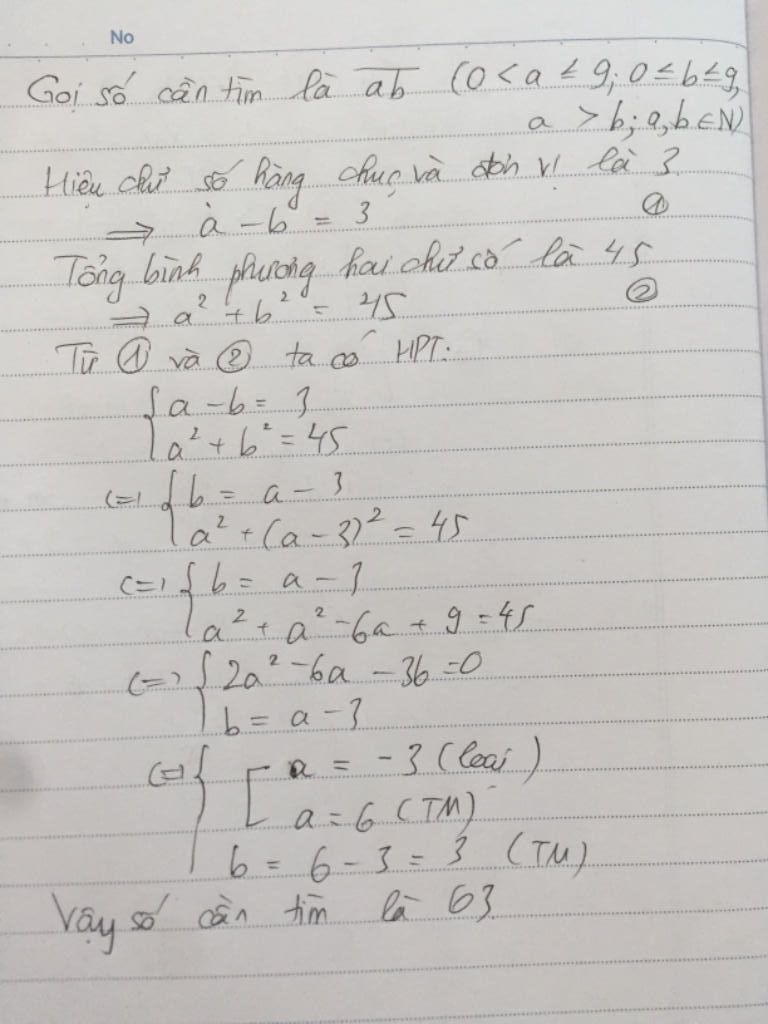 No
Gọi số cần tìm là ab̅ (0 < a ≤ 9; 0 ≤ b ≤ 9,
a > b; a,b ∈ N)
Hiệu chữ số hàng chục và đơn vị là 3
⇒ a - b = 3 ①
Tổng bình phương hai chữ số là 45
⇒ a² + b² = 45 ②
Từ ① và ② ta có HPT:
{ a - b = 3
a² + b² = 45
(=) { b = a - 3
a² + (a - 3)² = 45
(=) { b = a - 3
a² + a² - 6a + 9 = 45
(=) { 2a² - 6a - 36 = 0
b = a - 3
(=) { [ a = -3 (loại)
a = 6 (TM)
b = 6 - 3 = 3 (TM)
Vậy số cần tìm là 63